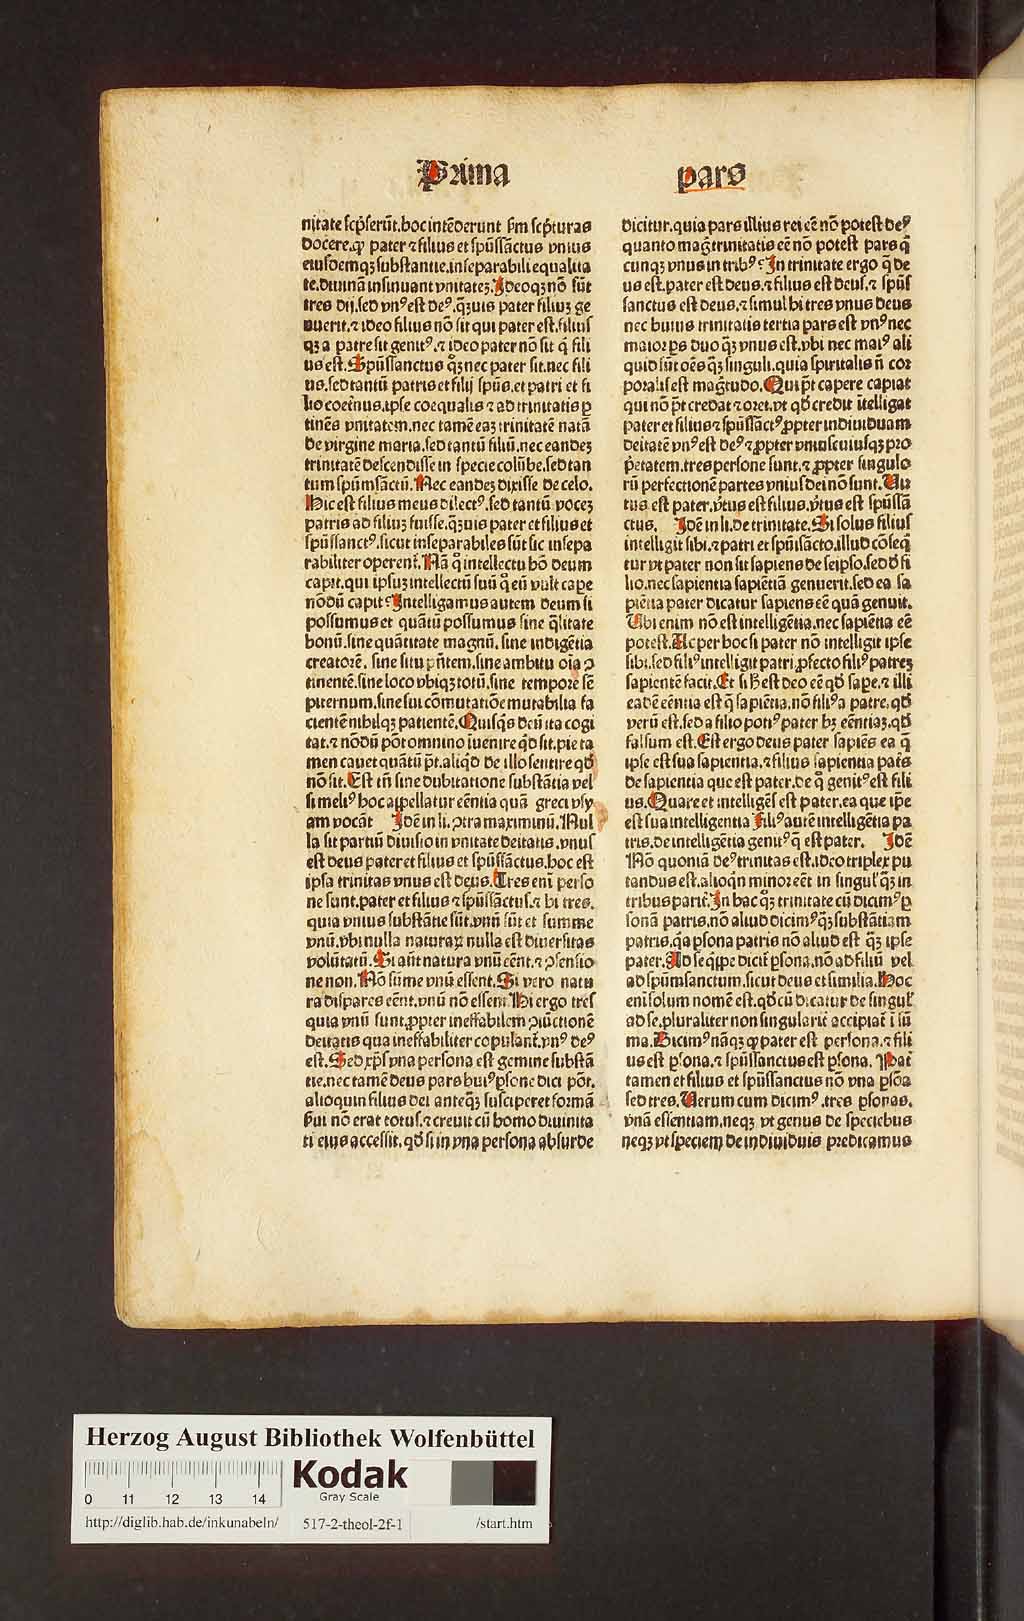 Prima pars
nitate scp̃serũt.hoc intẽderunt ẜm scp̃turas
docere.ꝙ pater ⁊ filius et spũssãctus vnius
eiusdemqꝫ substantie.inseparabili equalita
te.diuinã insinuant vnitateꝫ.Ideoqꝫ nõ sũt
tres dij.sed vnꝰ est deꝰ.q̃ꝫuis pater filiuꝫ ge
nuerit.⁊ ideo filius nõ sit qui pater est.filius
qꝫ a patre sit genitꝰ.⁊ ideo pater nõ sit q̃ fili
us est.Spũssanctus q̊ꝫ nec pater sit.nec fili
us.sed tantũ patris et filij spũs.et patri et fi
lio coetẽnus.ipse coequalis ⁊ ad trinitatis ꝑ
tinẽs vnitatem.nec tamẽ eaꝫ trinitatẽ natã
de virgine maria.sed tantũ filiũ.nec eandeꝫ
trinitatẽ descendisse in specie colũbe.sed tan
tum spũmsãctũ.Nec eandeꝫ dixisse de celo.
Hic est filius meus dilectꝰ.sed tantũ voceꝫ
patris ad filiuꝫ fuisse.q̃ꝫuis pater et filius et
spũssanctꝰ.sicut inseparabiles sũt sic insepa
rabiliter operent̃.Nã q̊ intellectu hõ deum
capit.qui ipsuꝫ intellectũ suũ q̊ eũ vult cape
nõdũ capit?Intelligamus autem deum si
possumus et quãtũ possumus sine q̃litate
bonũ.sine quãtitate magnũ.sine indigẽtia
creatorẽ.sine situ p̃ntem.sine ambitu oĩa ꝯ
tinentẽ.sine loco vbiqꝫ totũ.sine tempore sẽ
piternum.sine sui cõmutatiõe mutabilia fa
cientẽ nihilqꝫ patientẽ.Quisq̃s deũ ita cogi
tat.⁊ nõdũ põt omnino ĩuenire qd̃ sit.pie ta
men cauet quãtũ p̃t.aliqd̃ de illo sentire qd̃
nõ sit.Est tñ sine dubitatione substãtia vel
si meliꝰ hoc appellatur eẽntia quã greci vsy
am vocãt Idẽ in li.ꝯtra maximinũ.Nul
la sit partiũ diuisio in vnitate deitatis.vnus
est deus pater et filius et spũssãctus.hoc est
ipsa trinitas vnus est deus.Tres enĩ perso
ne sunt.pater et filius ⁊ spũssãctus.⁊ hi tres.
quia vnius substãtie sũt.vnũ sũt et summe
vnũ.vbi nulla naturaꝝ nulla est diuersitas
volũtatũ.Si aũt natura vnũ eẽnt.⁊ ꝯsensio
ne non.Nõ sũme vnũ essent.Si vero natu
ra dispares eẽnt.vnũ nõ essent.Hi ergo tres
quia vnũ sunt.ꝓpter ineffabilem ꝯiũctionẽ
deitatis qua ineffabiliter copulant̃.vnꝰ deꝰ
est.Sed xp̃s vna persona est gemine substã
tie.nec tamẽ deus pars huiꝰ ꝑsone dici põt.
alioquin filius dei anteq̃ꝫ susciperet formã
ẜui nõ erat totus.⁊ creuit cũ homo diuinita
ti eius accessit.qd̃ si in vna persona absurde
dicitur.quia pars illius rei eẽ nõ potest deꝰ
quanto mag̃ trinitatis eẽ nõ potest pars q̃
cunqꝫ vnus in tribꝰ?In trinitate ergo q̃ de
us est.pater est deus.⁊ filius est deus.⁊ spũs
sanctus est deus.⁊ simul hi tres vnus deus
nec huius trinitatis tertia pars est vnꝰ nec
maior ps̃ duo q̃ꝫ vnus est.vbi nec maiꝰ ali
quid sũt oẽs q̃ꝫ singuli.quia spiritalis ñ cor
poralis est mag̃tudo.Qui p̃t capere capiat
qui nõ p̃t credat ⁊ oret.vt qd̃ credit ĩtelligat
pater et filius ⁊ spũssãctꝰ ꝓpter indiuiduam
deitatẽ vnꝰ est deꝰ ⁊ ꝓpter vniuscuiusqꝫ pro
p̃etatem.tres persone sunt.⁊ ꝓpter singulo
rũ perfectionẽ partes vnius dei nõ sunt.Uir
tus est pater.v̓tus est filius.v̓tus est spũssã
ctus. Idẽ in li.de trinitate.Si solus filius
intelligit sibi.⁊ patri et spũisãcto.illud cõseq̃
tur vt pater non sit sapiens de seipso.sed d̓ fi
lio.nec sapientia sapiẽtiã genuerit.sed ea sa
piẽtia pater dicatur sapiens eẽ quã genuit.
Ubi enim nõ est intelligẽtia.nec sapiẽtia eẽ
potest.Ac per hoc si pater nõ intelligit ipse
sibi.sed filiꝰ intelligit patri.ꝓfecto filiꝰ patreꝫ
sapientẽ facit.Et si h̓ est deo eẽ qd̃ sape.⁊ illi
ea dẽ eẽntia est q̃ sapiẽtia.nõ filiꝰ a patre.qd̃
verũ est.sed a filio potiꝰ pater hꝫ eẽntiaꝫ.qd̃
falsum est.Est ergo deus pater sapiẽs ea q̃
ipse est sua sapientia.⁊ filius sapientia pat̃s
de sapientia que est pater.de q̃ genitꝰ est fili
us.Quare et intelligẽs est pater.ea que ip̃e
est sua intelligentia Filiꝰ autẽ intelligẽtia pa
tris.de intelligẽtia genitꝰ q̃ est pater. Idẽ
Nõ quoniã deꝰ trinitas est.ideo triplex pu
tandus est.alioq̃n minor eẽt in singulꝭ q̃ꝫ in
tribus parit̃.In hac q̊ꝫ trinitate cũ dicimꝰ ꝑ
sonã patris.nõ aliud dicimꝰ q̃ꝫ substãtiam
patris.q̃a ꝑsona patris nõ aliud est q̃ꝫ ipse
pater.Ad se q̃ppe dicit̃ ꝑsona.nõ ad filiũ vel
ad spũmsanctum.sicut deus et similia.Hoc
enĩ solum nomẽ est.qd̃ cũ dicatur de singulꝭ
ad se.pluraliter non singularit̃ accipiat̃ ĩ sũ
ma.Dicimꝰ nãqꝫ ꝙ pater est persona.⁊ fili
us est ꝑsona.⁊ spũssanctus est ꝑsona.Pat̃
tamen et filius et spũssanctus nõ vna ꝑsõa
sed tres.Uerum cum dicimꝰ.tres ꝑsonas.
vnã essentiam.neqꝫ vt genus de speciebus
neqꝫ vt speciem de indiuiduis predicamus
Herzog August Bibliothek Wolfenbüttel
0 11 12 13 14
Kodak
Gray Scale
http://diglib.hab.de/inkunabeln/ 517-2-theol-2f-1 /start.htm